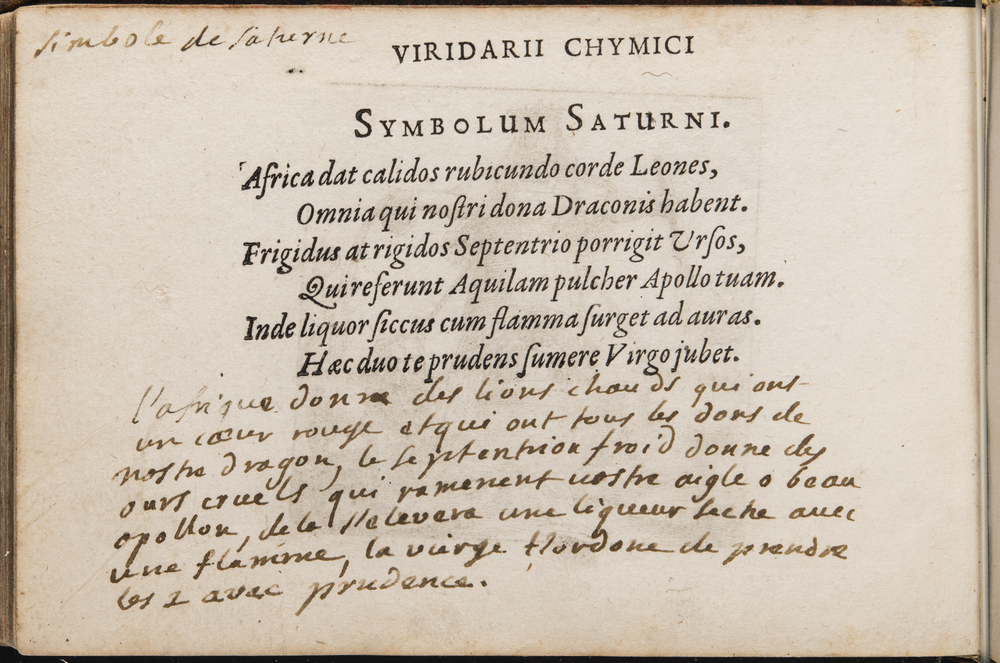 simbole de saturne
VIRIDARII CHYMICI
SYMBOLUM SATURNI.
Africa dat calidos rubicundo corde Leones,
Omnia qui noſtri dona Draconis habent.
Frigidus at rigidos Septentrio porrigit Urſos,
Qui referunt Aquilam pulcher Apollo tuam.
Inde liquor ſiccus cum flamma ſurget ad auras.
Hæc duo te prudens ſumere Virgo jubet.
l'afrique donne des lions chauds qui ont
un cœur rouge et qui ont tous les dons de
nostre dragon, le septentrion froid donne des
ours cruels qui ramenent vostre aigle o beau
apollon, de la s'elevera une liqueur seche avec
une flamme, la vierge t'ordone de prendre
les 2 avec prudence.